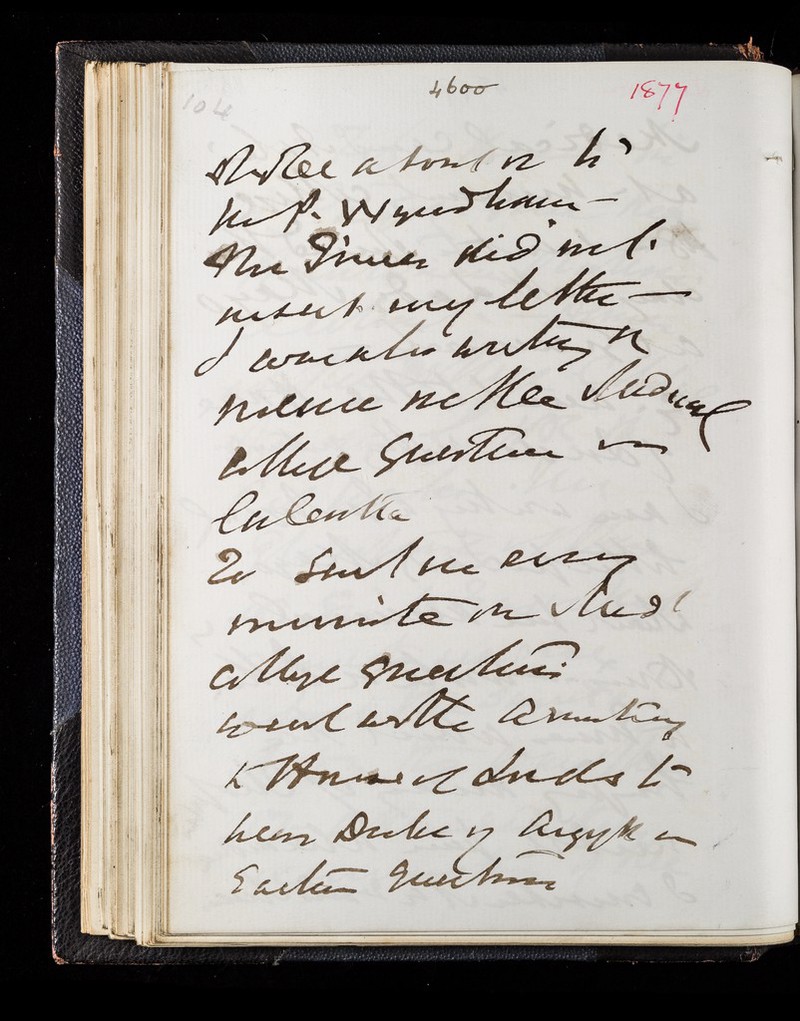 104
4600
1877
to
P. Wyndham —
The Times did not
insert my letter —
I am also writing
the Medical
College Question in
Calcutta
20 Sent me every
minute on Med
College questions
went with Armstrong
to House of Lords to
hear Duke of Argyll on
Eastern Question